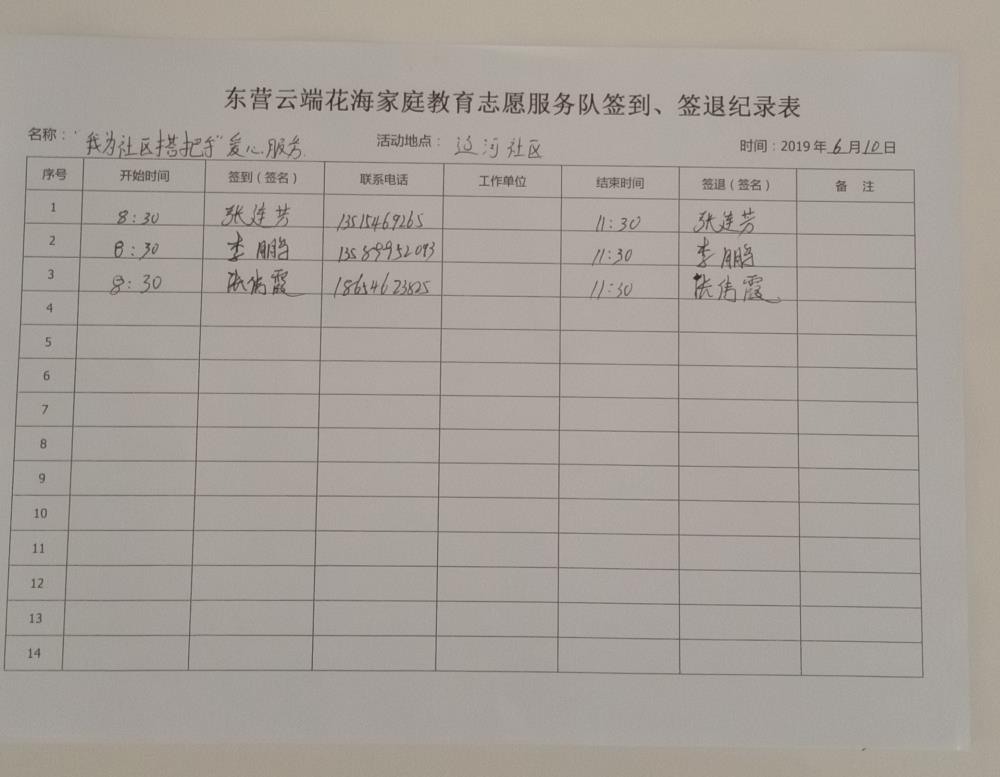 东营云端花海家庭教育志愿服务队签到、签退纪录表
名称："我为社区搭把手"爱心服务 活动地点： 辽河社区 时间：2019年6月10日
序号 开始时间 签到（签名） 联系电话 工作单位 结束时间 签退（签名） 备 注
1 8:30 张连芳 13515469265 11:30 张连芳
2 8:30 李鹏 13589952093 11:30 李鹏
3 8:30 张倩霞 18654623825 11:30 张倩霞
4
5
6
7
8
9
10
11
12
13
14